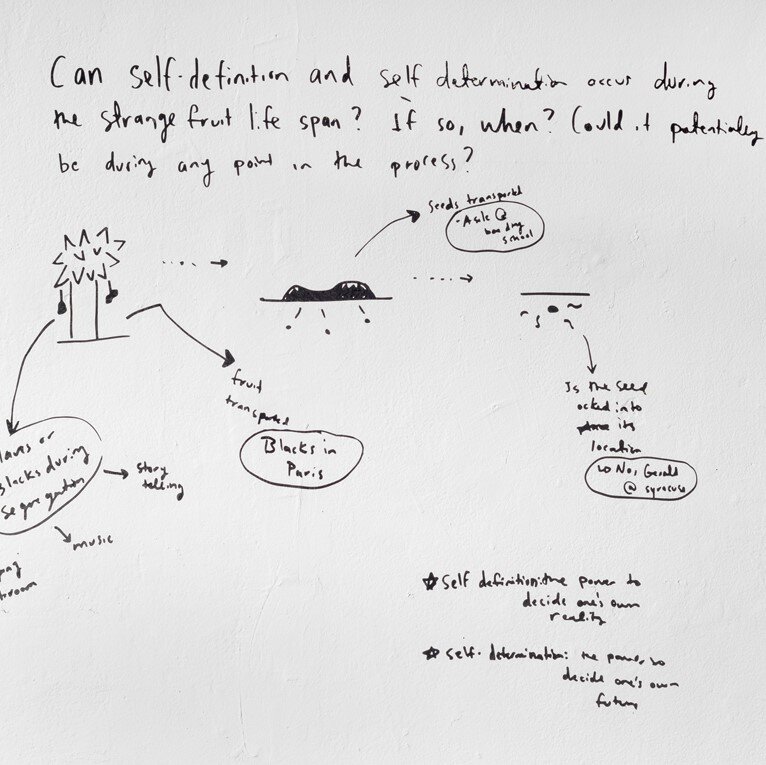 Can self-definition and self determination occur during
the strange fruit life span? If so, when? Could it potentially
be during any point in the process?
seeds transported
- Asle @
boarding
school
fruit
transported
Blacks in
Paris
Is the seed
ocked into
its
location
No, Gerald
@ syracuse
laves or
Blacks during
segregation
story
telling
music
self definition: the power to
decide one's own
reality
self-determination: the power to
decide one's own
future